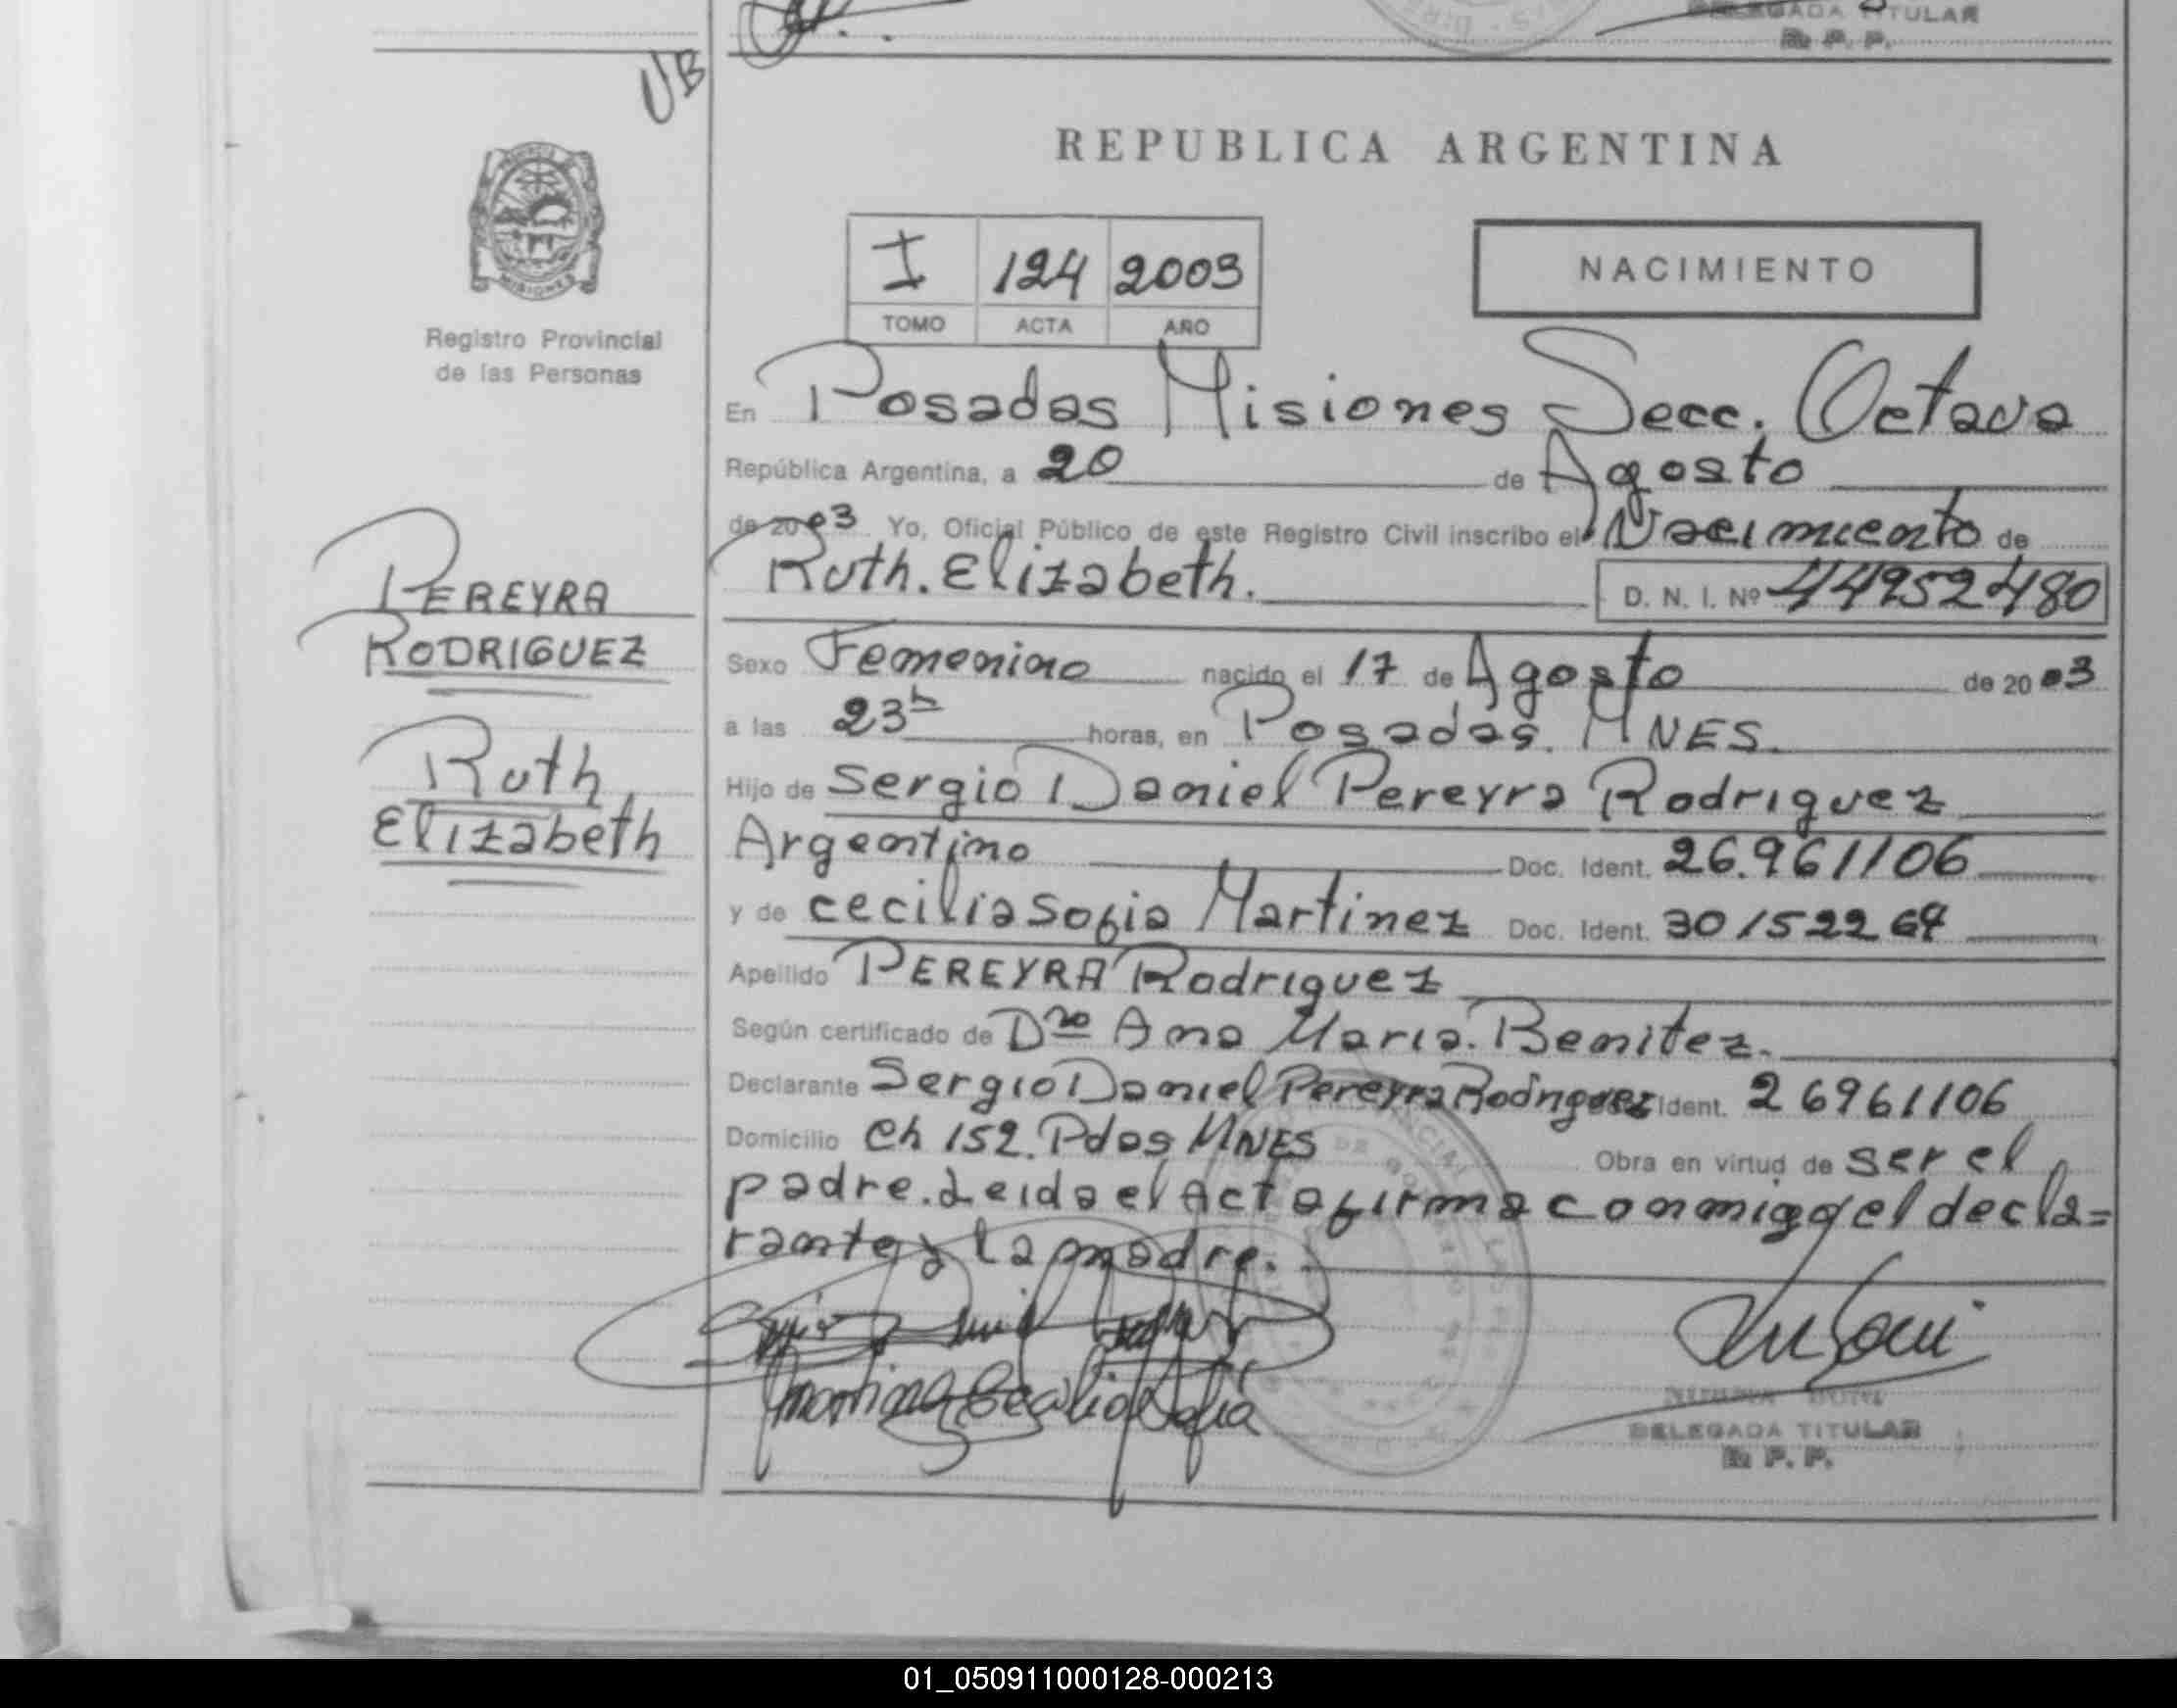 DELEGADA TITULAR
R. P. P.
UB
REPUBLICA ARGENTINA
PROVINCIA DE
MISIONES
Registro Provincial
de las Personas
I 124 2003
TOMO ACTA AÑO
NACIMIENTO
En Posadas Misiones Secc. Octava
República Argentina, a 20 de Agosto
de 2003 Yo, Oficial Público de este Registro Civil inscribo el Nacimiento de
Ruth. Elizabeth. D. N. I. Nº 44952480
PEREYRA
RODRIGUEZ
Ruth
Elizabeth
Sexo Femenino nacido el 17 de Agosto de 2003
a las 23h horas, en Posadas. MNES.
Hijo de Sergio Daniel Pereyra Rodriguez
Argentino Doc. Ident. 26.961106
y de Cecilia Sofia Martinez Doc. Ident. 30152264
Apellido PEREYRA Rodriguez
Según certificado de Dra Ana Maria. Benitez.
Declarante Sergio Daniel Pereyra Rodriguez Ident. 26961106
Domicilio Ch 152. Pdas MNES Obra en virtud de ser el
padre. Leida el Acta firma conmigo el decla=
rante y la madre.
Martinez Cecilia Sofia
DELEGADA TITULAR
R. P. P.
01_050911000128-000213